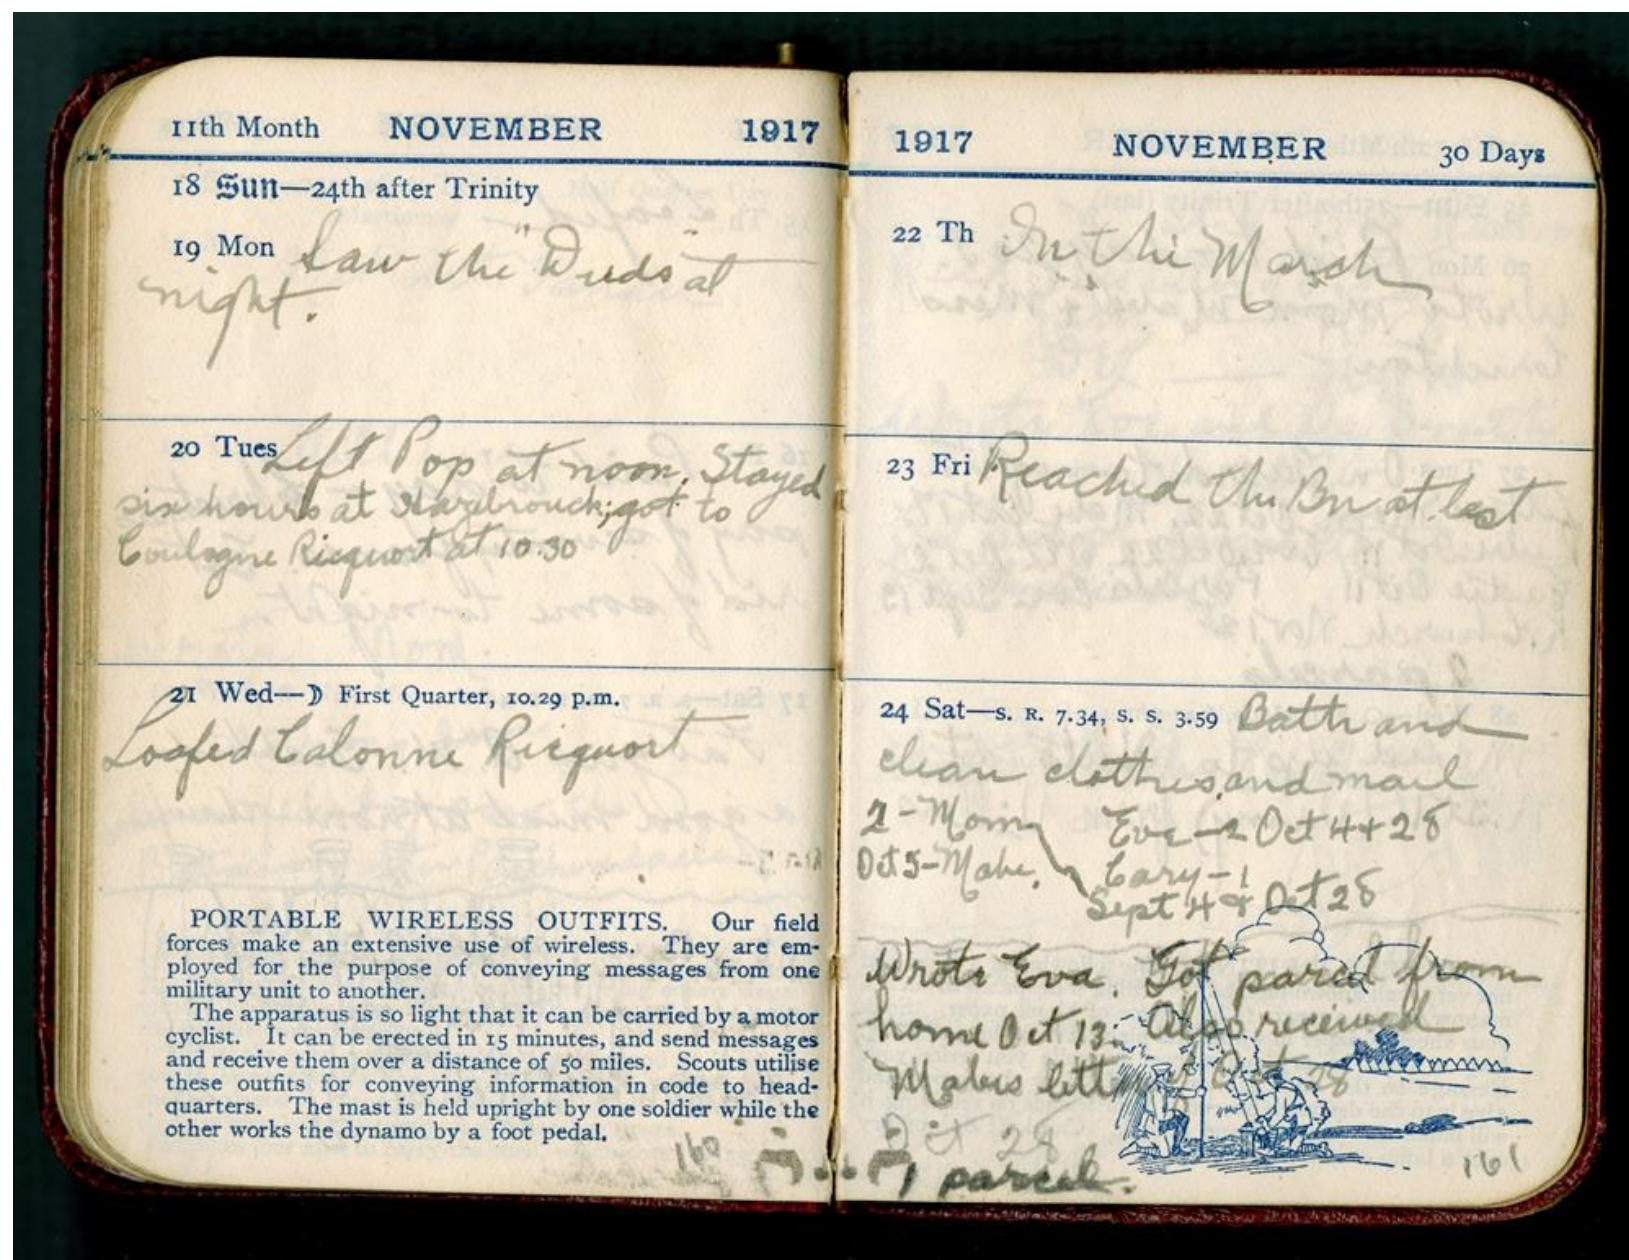 11th Month NOVEMBER 1917
18 Sun—24th after Trinity
19 Mon Saw the "Duds" at
night.
20 Tues Left Pop at noon. Stayed
six hours at Hazbrouck; got to
Coulogne Ricquort at 10.30
21 Wed—☽ First Quarter, 10.29 p.m.
Loafed Calonne Ricquort
PORTABLE WIRELESS OUTFITS. Our field
forces make an extensive use of wireless. They are em-
ployed for the purpose of conveying messages from one
military unit to another.
The apparatus is so light that it can be carried by a motor
cyclist. It can be erected in 15 minutes, and send messages
and receive them over a distance of 50 miles. Scouts utilise
these outfits for conveying information in code to head-
quarters. The mast is held upright by one soldier while the
other works the dynamo by a foot pedal.
160
1917 NOVEMBER 30 Days
22 Th On the March
23 Fri Reached the Bn at last
24 Sat—S. R. 7.34, S. S. 3.59 Bath and
clean clothes and mail
2-Mom Eva-2 Oct 4+28
Oct 5-Mabe. Cary-1
Sept 4 & Oct 28
Wrote Eva. Got parcel from
home Oct 13. Also received
Mabes letter Oct 28
Oct 28
1 parcel.
161